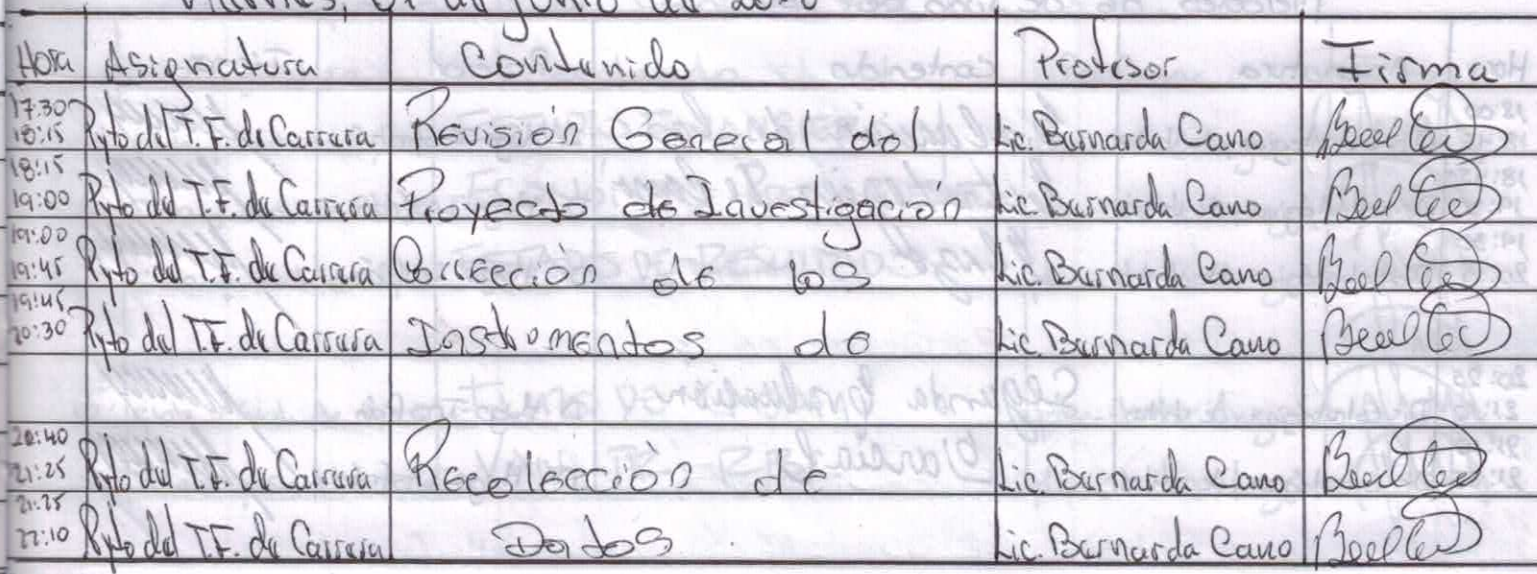 Hora Asignatura Contenido Profesor Firma
17:30 18:15 Pyto del T.F. de Carrera Revisión General del Lic. Bernarda Cano
18:15 19:00 Pyto del T.F. de Carrera Proyecto de Investigación Lic. Bernarda Cano
19:00 19:45 Pyto del T.F. de Carrera Corrección de los Lic. Bernarda Cano
19:45 20:30 Pyto del T.F. de Carrera Instrumentos de Lic. Bernarda Cano
20:40 21:25 Pyto del T.F. de Carrera Recolección de Lic. Bernarda Cano
21:25 22:10 Pyto del T.F. de Carrera Datos. Lic. Bernarda Cano